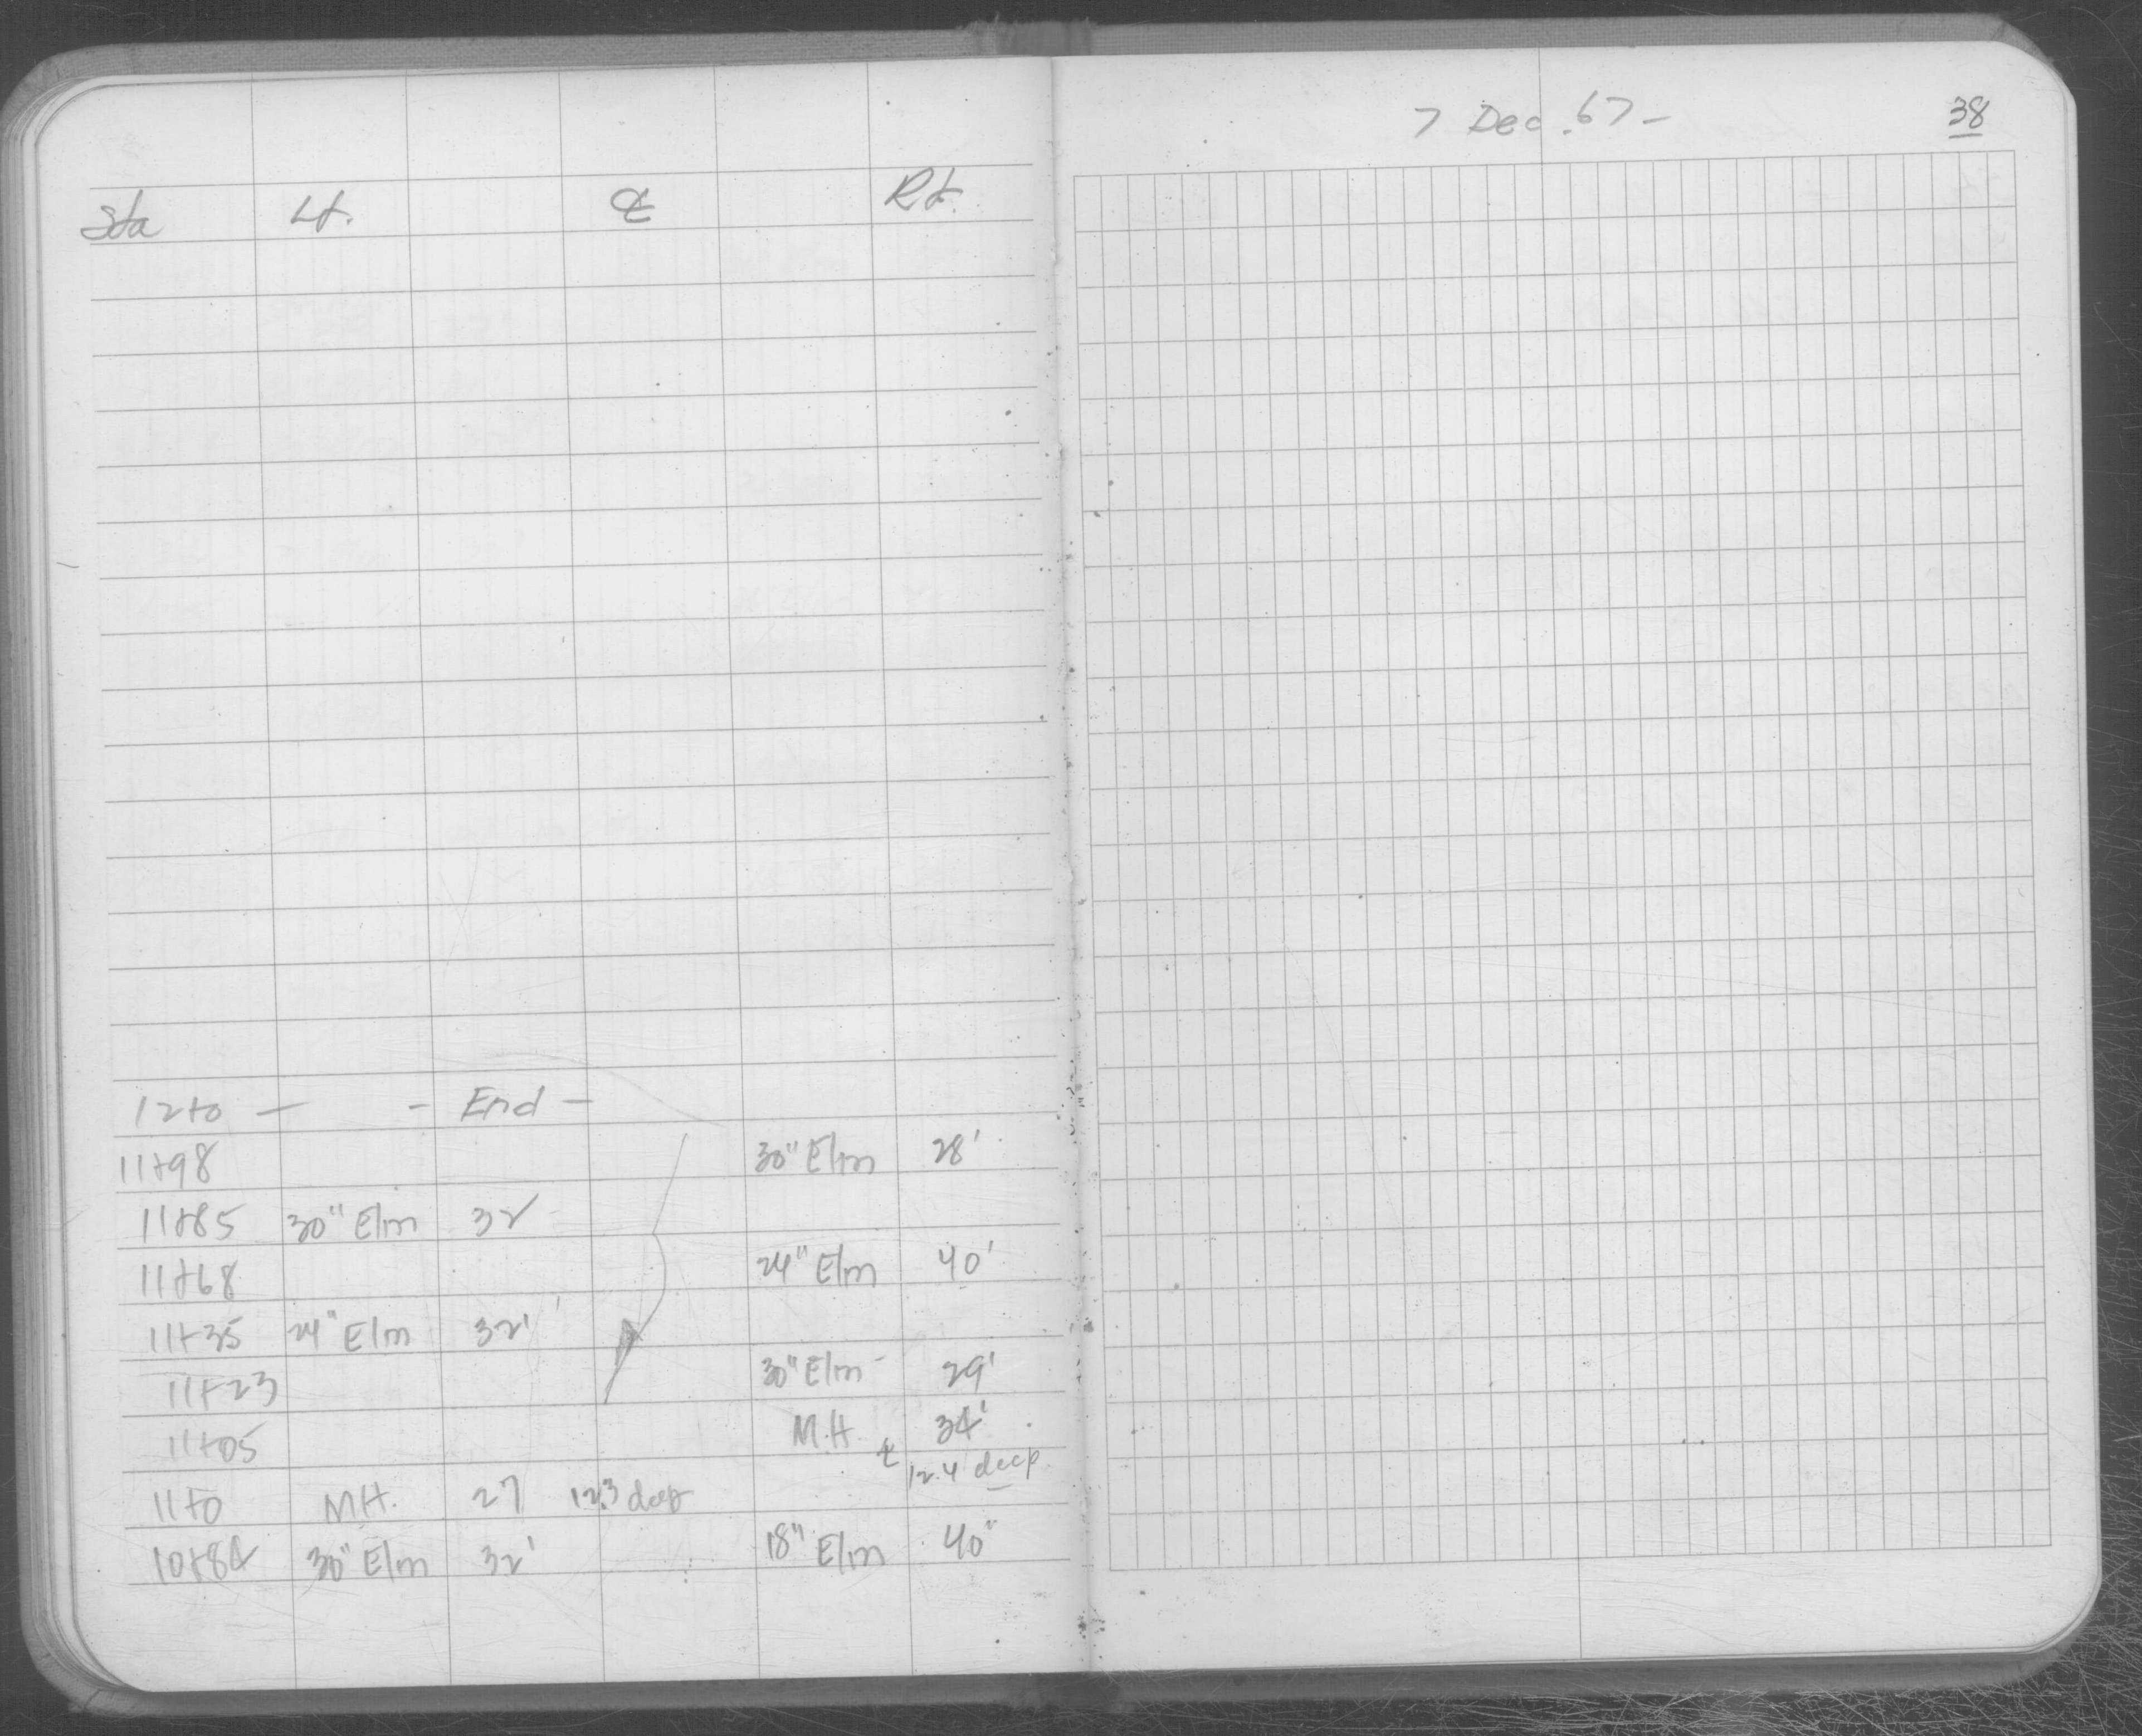 7 Dec. 67 -
38
Sta Lt. ℄ Rt.
12+0 - - End -
11+98 30" Elm 28'
11+85 30" Elm 32
11+68 24" Elm 40'
11+35 24" Elm 32'
11+23 30" Elm 29'
11+05 M.H. 34'
℄ 12.4 deep
11+0 M.H. 27 12.3 deep
10+84 30" Elm 32' 18" Elm 40"